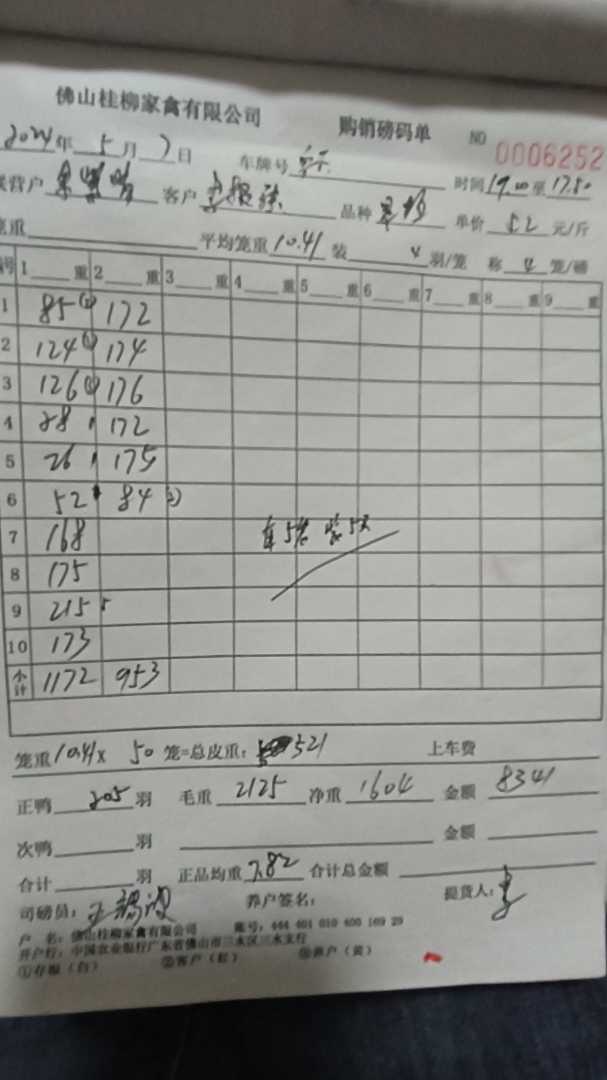 佛山桂柳家禽有限公司 购销磅码单 NO 0006252
2024年 5月 7日 车牌号
营户 客户 品种 单价 5.2 元/斤 时间 17.00至17.50
笼重 平均笼重10.41 装 4 羽/笼 称 4 笼/磅
编号 1 重 2 重 3 重 4 重 5 重 6 重 7 重 8 重 9 重
1 85 172
2 124 174
3 126 176
4 88 172
5 26 175
6 52 84
7 168
8 175
9 215
10 173
小计 1172 953
笼重10.41x 50 笼=总皮重: 521 上车费
正鸭 205 羽 毛重 2125 净重 1604 金额 8341
次鸭 羽 金额
合计 羽 正品均重 7.82 合计总金额
司磅员: 养户签名: 提货人:
户 名: 佛山桂柳家禽有限公司 账号: 444 601 010 400 169 29
开户行: 中国农业银行广东省佛山市三水区三水支行
①存根(白) ②客户(红) ③养户(黄)